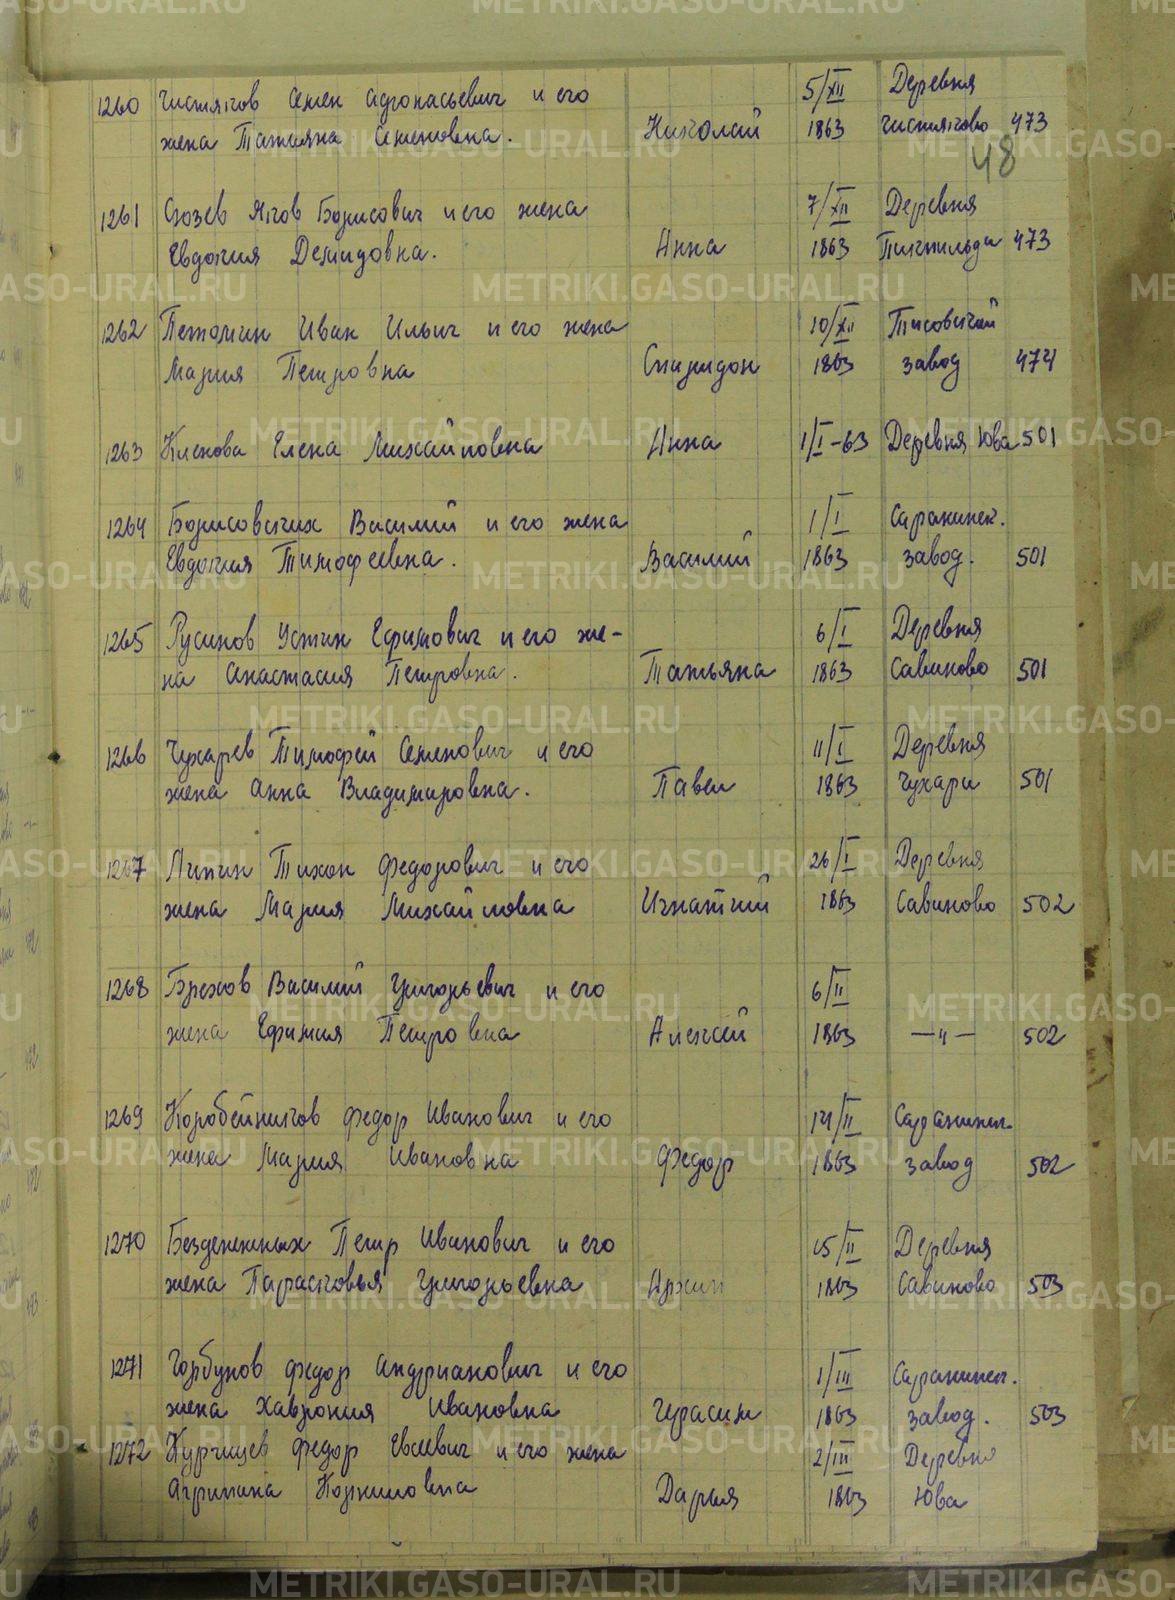 1260 Чистяков Семен Афонасьевич и его 5/XII Деревня
жена Татьяна Семеновна. Николай 1863 Чистяково 473
48
1261 Сюзев Яков Борисович и его жена 7/XII Деревня
Евдокия Демидовна. Анна 1863 473
1262 Иван Ильич и его жена 10/XII Тисовский
Мария Петровна Спиридон 1863 завод 474
1263 Кленова Елена Михайловна Анна 1/I-63 Деревня Юва 501
1264 Борисовских Василий и его жена 1/I Саранинск.
Евдокия Тимофеевна. Василий 1863 завод. 501
1265 Русинов Устин Ефимович и его же- 6/I Деревня
на Анастасия Петровна. Татьяна 1863 Савиново 501
1266 Чухарев Тимофей Семенович и его 11/I Деревня
жена Анна Владимировна. Павел 1863 Чухари 501
1267 Липин Тихон Федорович и его 26/I Деревня
жена Мария Михайловна Игнатий 1863 Савиново 502
1268 Брехов Василий Григорьевич и его 6/II
жена Ефимия Петровна Алексей 1863 —"— 502
1269 Коробейников Федор Иванович и его 14/II Саранинск.
жена Мария Ивановна Федор 1863 завод 502
1270 Безденежных Петр Иванович и его 15/II Деревня
жена Парасковья Григорьевна Архип 1863 Савиново 503
1271 Горбунов Федор Андрианович и его 1/III Саранинск.
жена Хаврония Ивановна Герасим 1863 завод. 503
1272 Федор Евсевич и его жена 2/III Деревня
Агрипина Корниловна Дарья 1863 Юва
METRIKI.GASO-URAL.RU